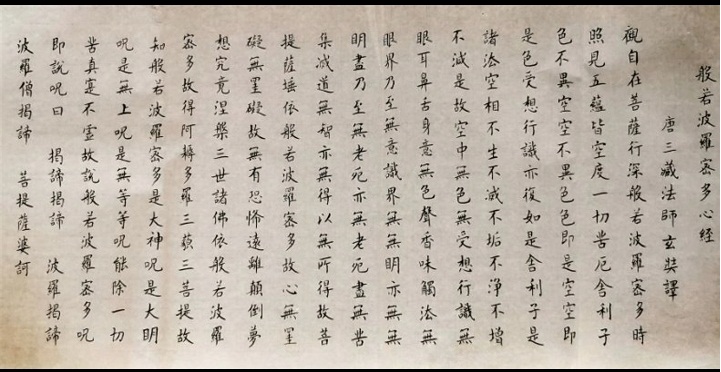 般若波羅蜜多心經
唐三藏法師玄奘譯
觀自在菩薩行深般若波羅蜜多時
照見五蘊皆空度一切苦厄舍利子
色不異空空不異色色即是空空即
是色受想行識亦復如是舍利子是
諸法空相不生不滅不垢不淨不增
不減是故空中無色無受想行識無
眼耳鼻舌身意無色聲香味觸法無
眼界乃至無意識界無無明亦無無
明盡乃至無老死亦無老死盡無苦
集滅道無智亦無得以無所得故菩
提薩埵依般若波羅蜜多故心無罣
礙無罣礙故無有恐怖遠離顛倒夢
想究竟涅槃三世諸佛依般若波羅
蜜多故得阿耨多羅三藐三菩提故
知般若波羅蜜多是大神呪是大明
呪是無上呪是無等等呪能除一切
苦真實不虛故說般若波羅蜜多呪
即說呪曰 揭諦揭諦 波羅揭諦
波羅僧揭諦 菩提薩婆訶